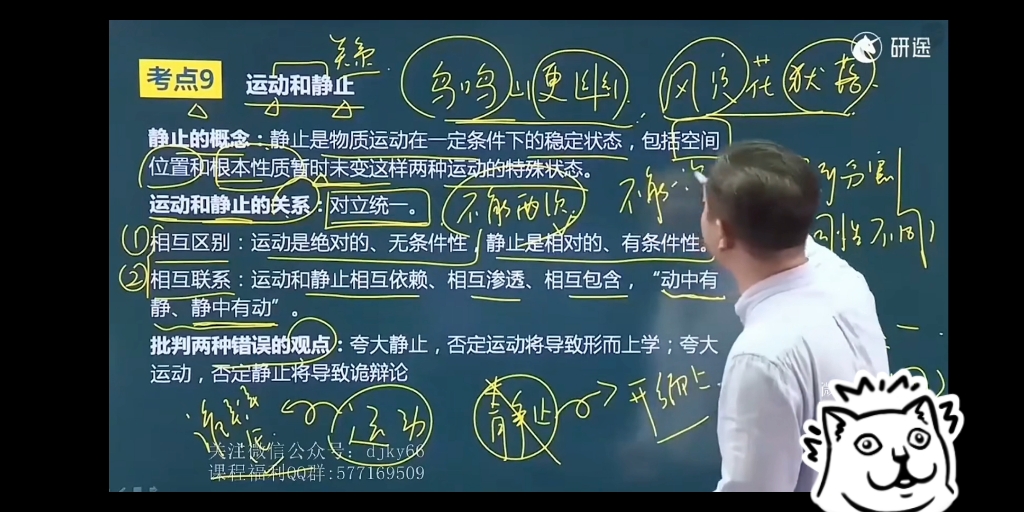 研途
关系
考点9 运动和静止
鸟鸣山更幽
静止的概念：静止是物质运动在一定条件下的稳定状态，包括空间
位置和根本性质暂时未变这样两种运动的特殊状态。
运动和静止的关系：对立统一。
不能两次
不能一次
① 相互区别：运动是绝对的、无条件性，静止是相对的、有条件性。
② 相互联系：运动和静止相互依赖、相互渗透、相互包含，“动中有
静、静中有动”。
批判两种错误的观点：夸大静止，否定运动将导致形而上学；夸大
运动，否定静止将导致诡辩论
运动
静止
形而上
关注微信公众号：djky66
课程福利QQ群:577169509